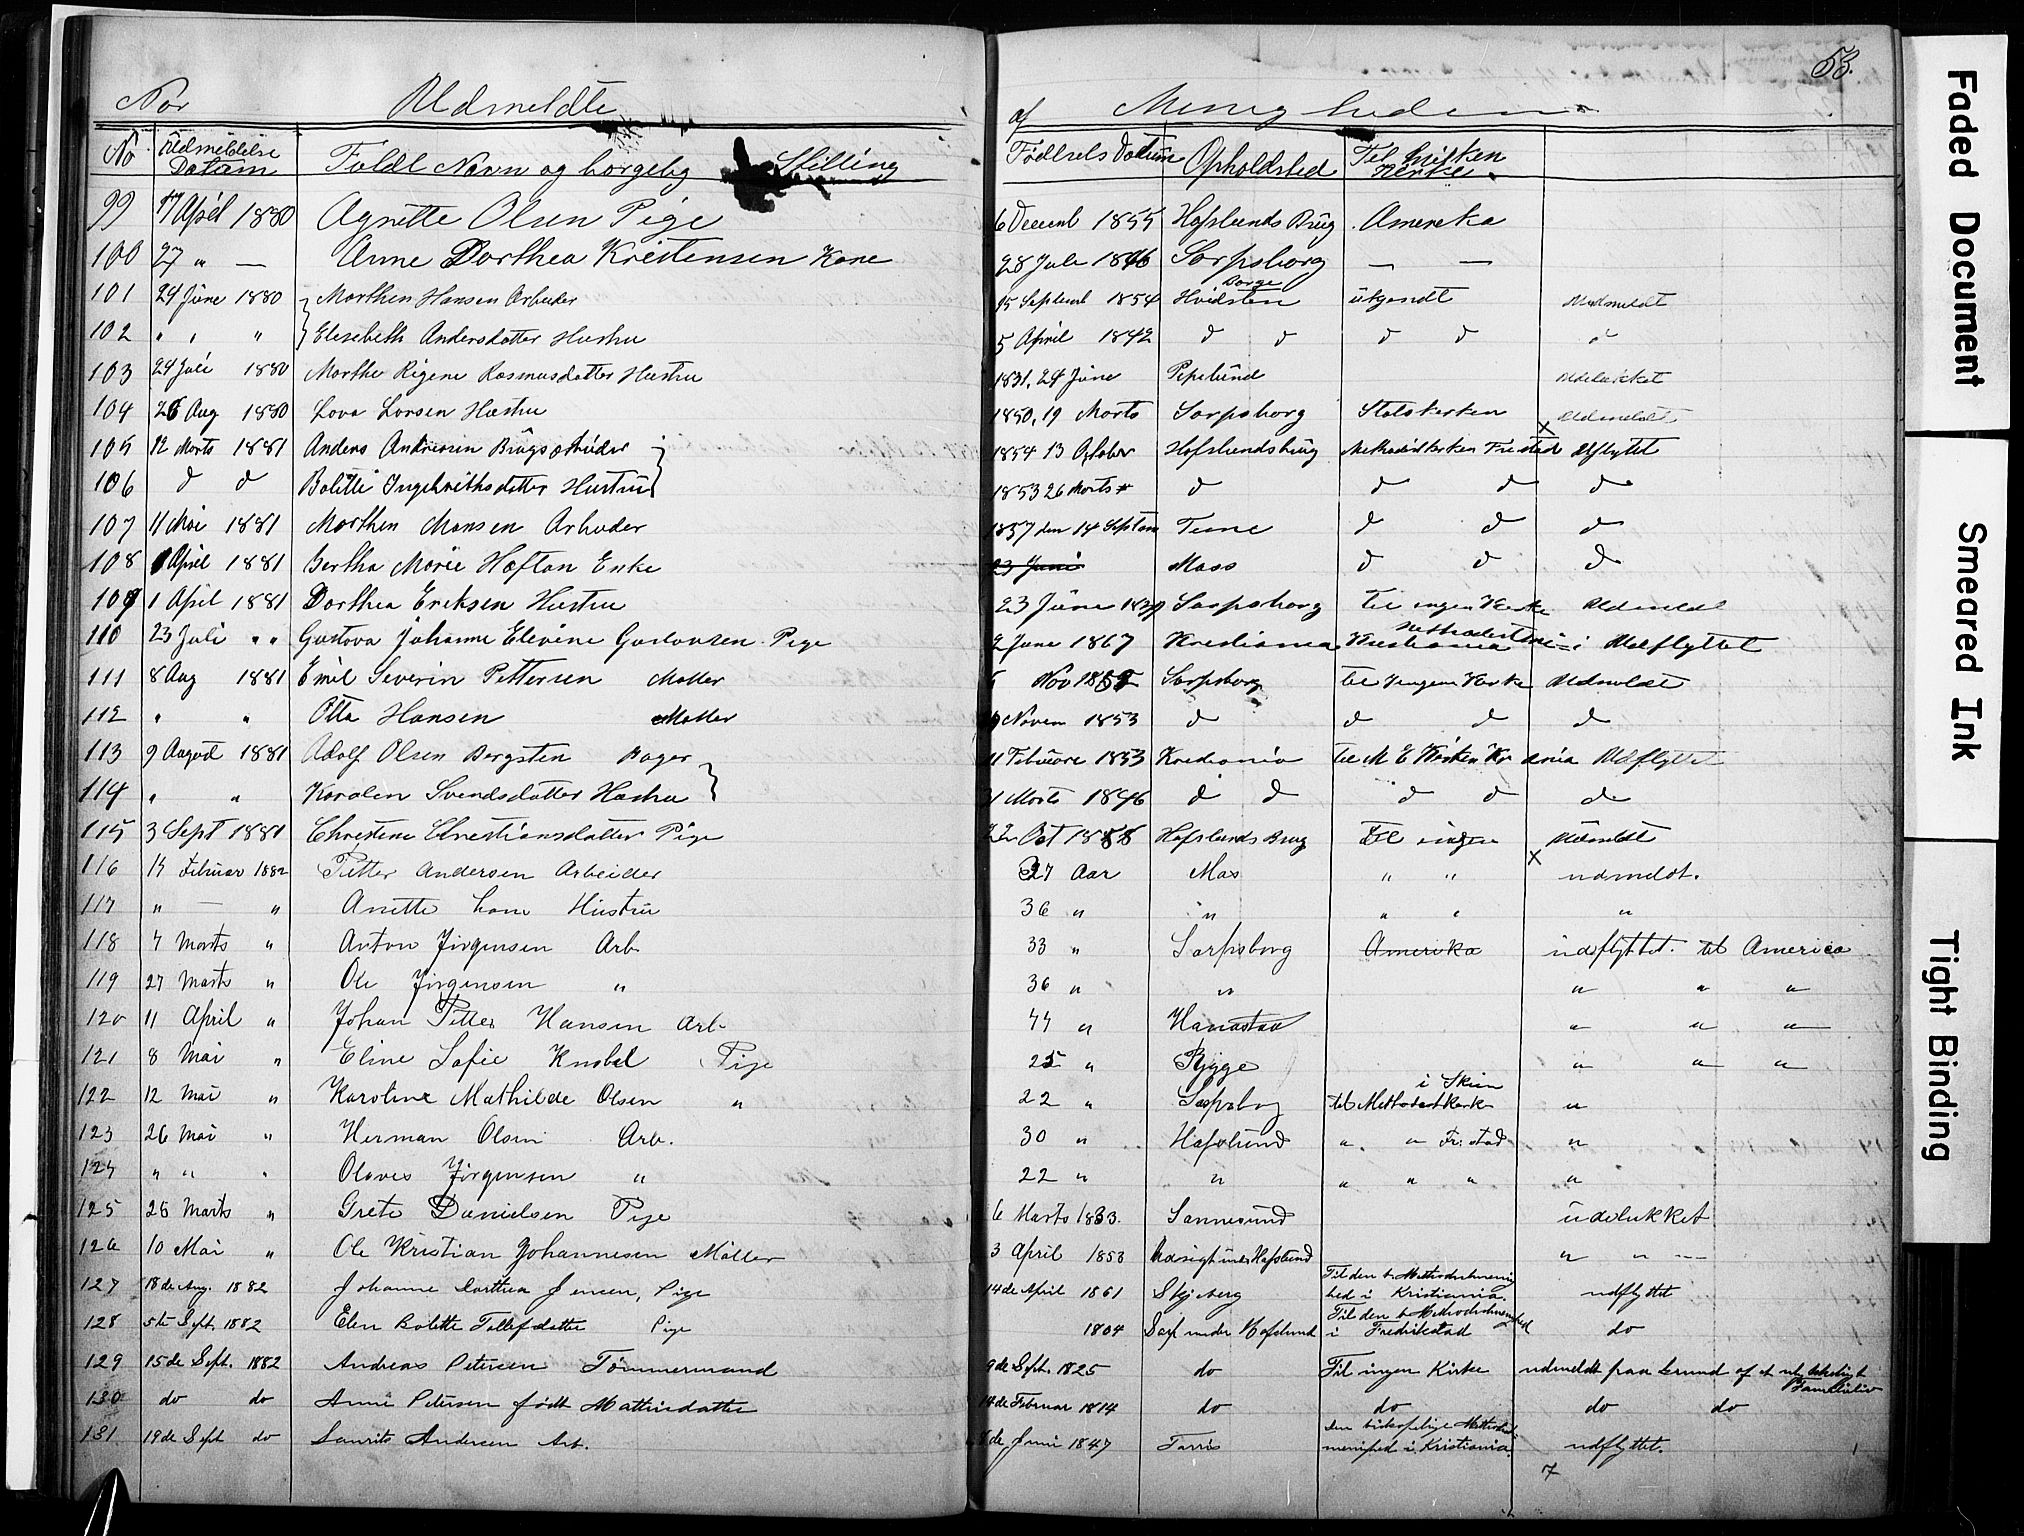 Udmeldte
af Menigheden
53.
No Udmeldelse Datum Fuldt Navn og borgelig Stilling Födsels Datum Opholdsted Til hvilken Kirke
99 17 April 1880 Agnette Olsen Pige 6 Decemb 1855 Hafslunds Brug Amerika
100 27 " — Anne Dorthea Kristensen Kone 28 Juli 1846 Sarpsborg — —
101 24 June 1880 Marthin Hansen Arbeider 15 Septemb 1854 Hvidsten Borge Udmeldt
102 " " " Elesebeth Andersdatter Hustru 5 April 1842 d d d d d
103 24 Juli 1880 Marthe Rigene Rasmusdatter Hustru 1831, 24 June Pipelund Udelukket
104 26 Aug 1880 Lova Larsen Hustru 1850, 19 Marts Sarpsborg Statskerken Udmeldt
105 12 Marts 1881 Anders Andresen Brugsarbeider 1854 13 October Hafslundsbrug Methodistkerken Fr.stad x Udflyttet
106 d d Bolette Ingebrethsdatter Hustru 1853 26 Marts d d d d
107 11 Mai 1881 Marthin Hansen Arbeder 1857 den 14 Septem Tune d d d
108 1 April 1881 Bertha Marie Haftan Enke 23 Juni Moss d d d
109 1 April 1881 Dorthea Eriksen Hustru 23 June Sarpsborg til ingen Kerke Udmeldt
110 23 Juli " " Gustava Johanne Elevine Gustavsen Pige 2 June 1867 Kristiania Kristiania Udflyttet
111 8 Aug 1881 Emil Severin Pettersen Matter Nov Sarpsborg til Ingen Kerke Udmeldt
112 " " Otto Hansen Matter Novem 1853 d d d d
113 9 August 1881 Adolf Olsen Bergsten Bager 11 Februare 1853 Krestiania til M E Kirken Kr ania Udflyttet
114 " " Karolen Svendsdatter Hustru 31 Marts 1846 d d d d d
115 3 Sept 1881 Christine Christiansdatter Pige 22 Oct Hafslunds Brug til ingen Udmeldt
116 14 Februar 1882 Petter Andersen Arbeider 37 Aar Mos " " x udmeldt.
117 " — " Anette hans Hustru 36 " " " " "
118 7 Marts " Anton Jörgensen Arb 33 " Sarpsborg Amerika udflyttet til America
119 27 Marts " Ole Jörgensen " 36 " " " " "
120 11 April " Johan Petter Hansen Arb. 44 " " " "
121 8 Mai " Eline Sofie Knobel Pige 25 " Rygge " " "
122 12 Mai " Karoline Mathilde Olsen " 22 " Sarpsborg til Methodistkerk i Skien "
123 26 Mai " Herman Olsen Arb. 30 " Hafslund " " Fr.stad "
124 " " " Olaves Jörgensen " 22 " " " " " "
125 26 Marts " Grete Danielsen Pige 6 Marts Sannesund udelukket
126 10 Mai " Ole Kristian Johannesen Möller 3 April 1853 under Hafslund " " —
127 18de Aug. 1882 Johanne Dorthea Jensen, Pige 14de April 1861 Skjeberg Til den b Methodistmenighed i Kristiania. udflyttet
128 5te Sept. 1882 Elen Bolette Tollefsdatter Pige 1864 under Hafslund Til den b Methodistmenighed i Fredrikstad do
129 15de Sept. 1882 Andreas Petersen Tömmermand 9de Sept. 1825 do Til ingen Kirke udmeldt paa Grund af et Familieliv
130 do do Anne Petersen födt Mathisdatter 14de Februar 1814 do do do do
131 19de Sept do Laurits Andersen Arb. de Juni 1847 Den biskopelige Methodistmenighed i Kristiania udflyttet.
Faded Document
Smeared Ink
Tight Binding